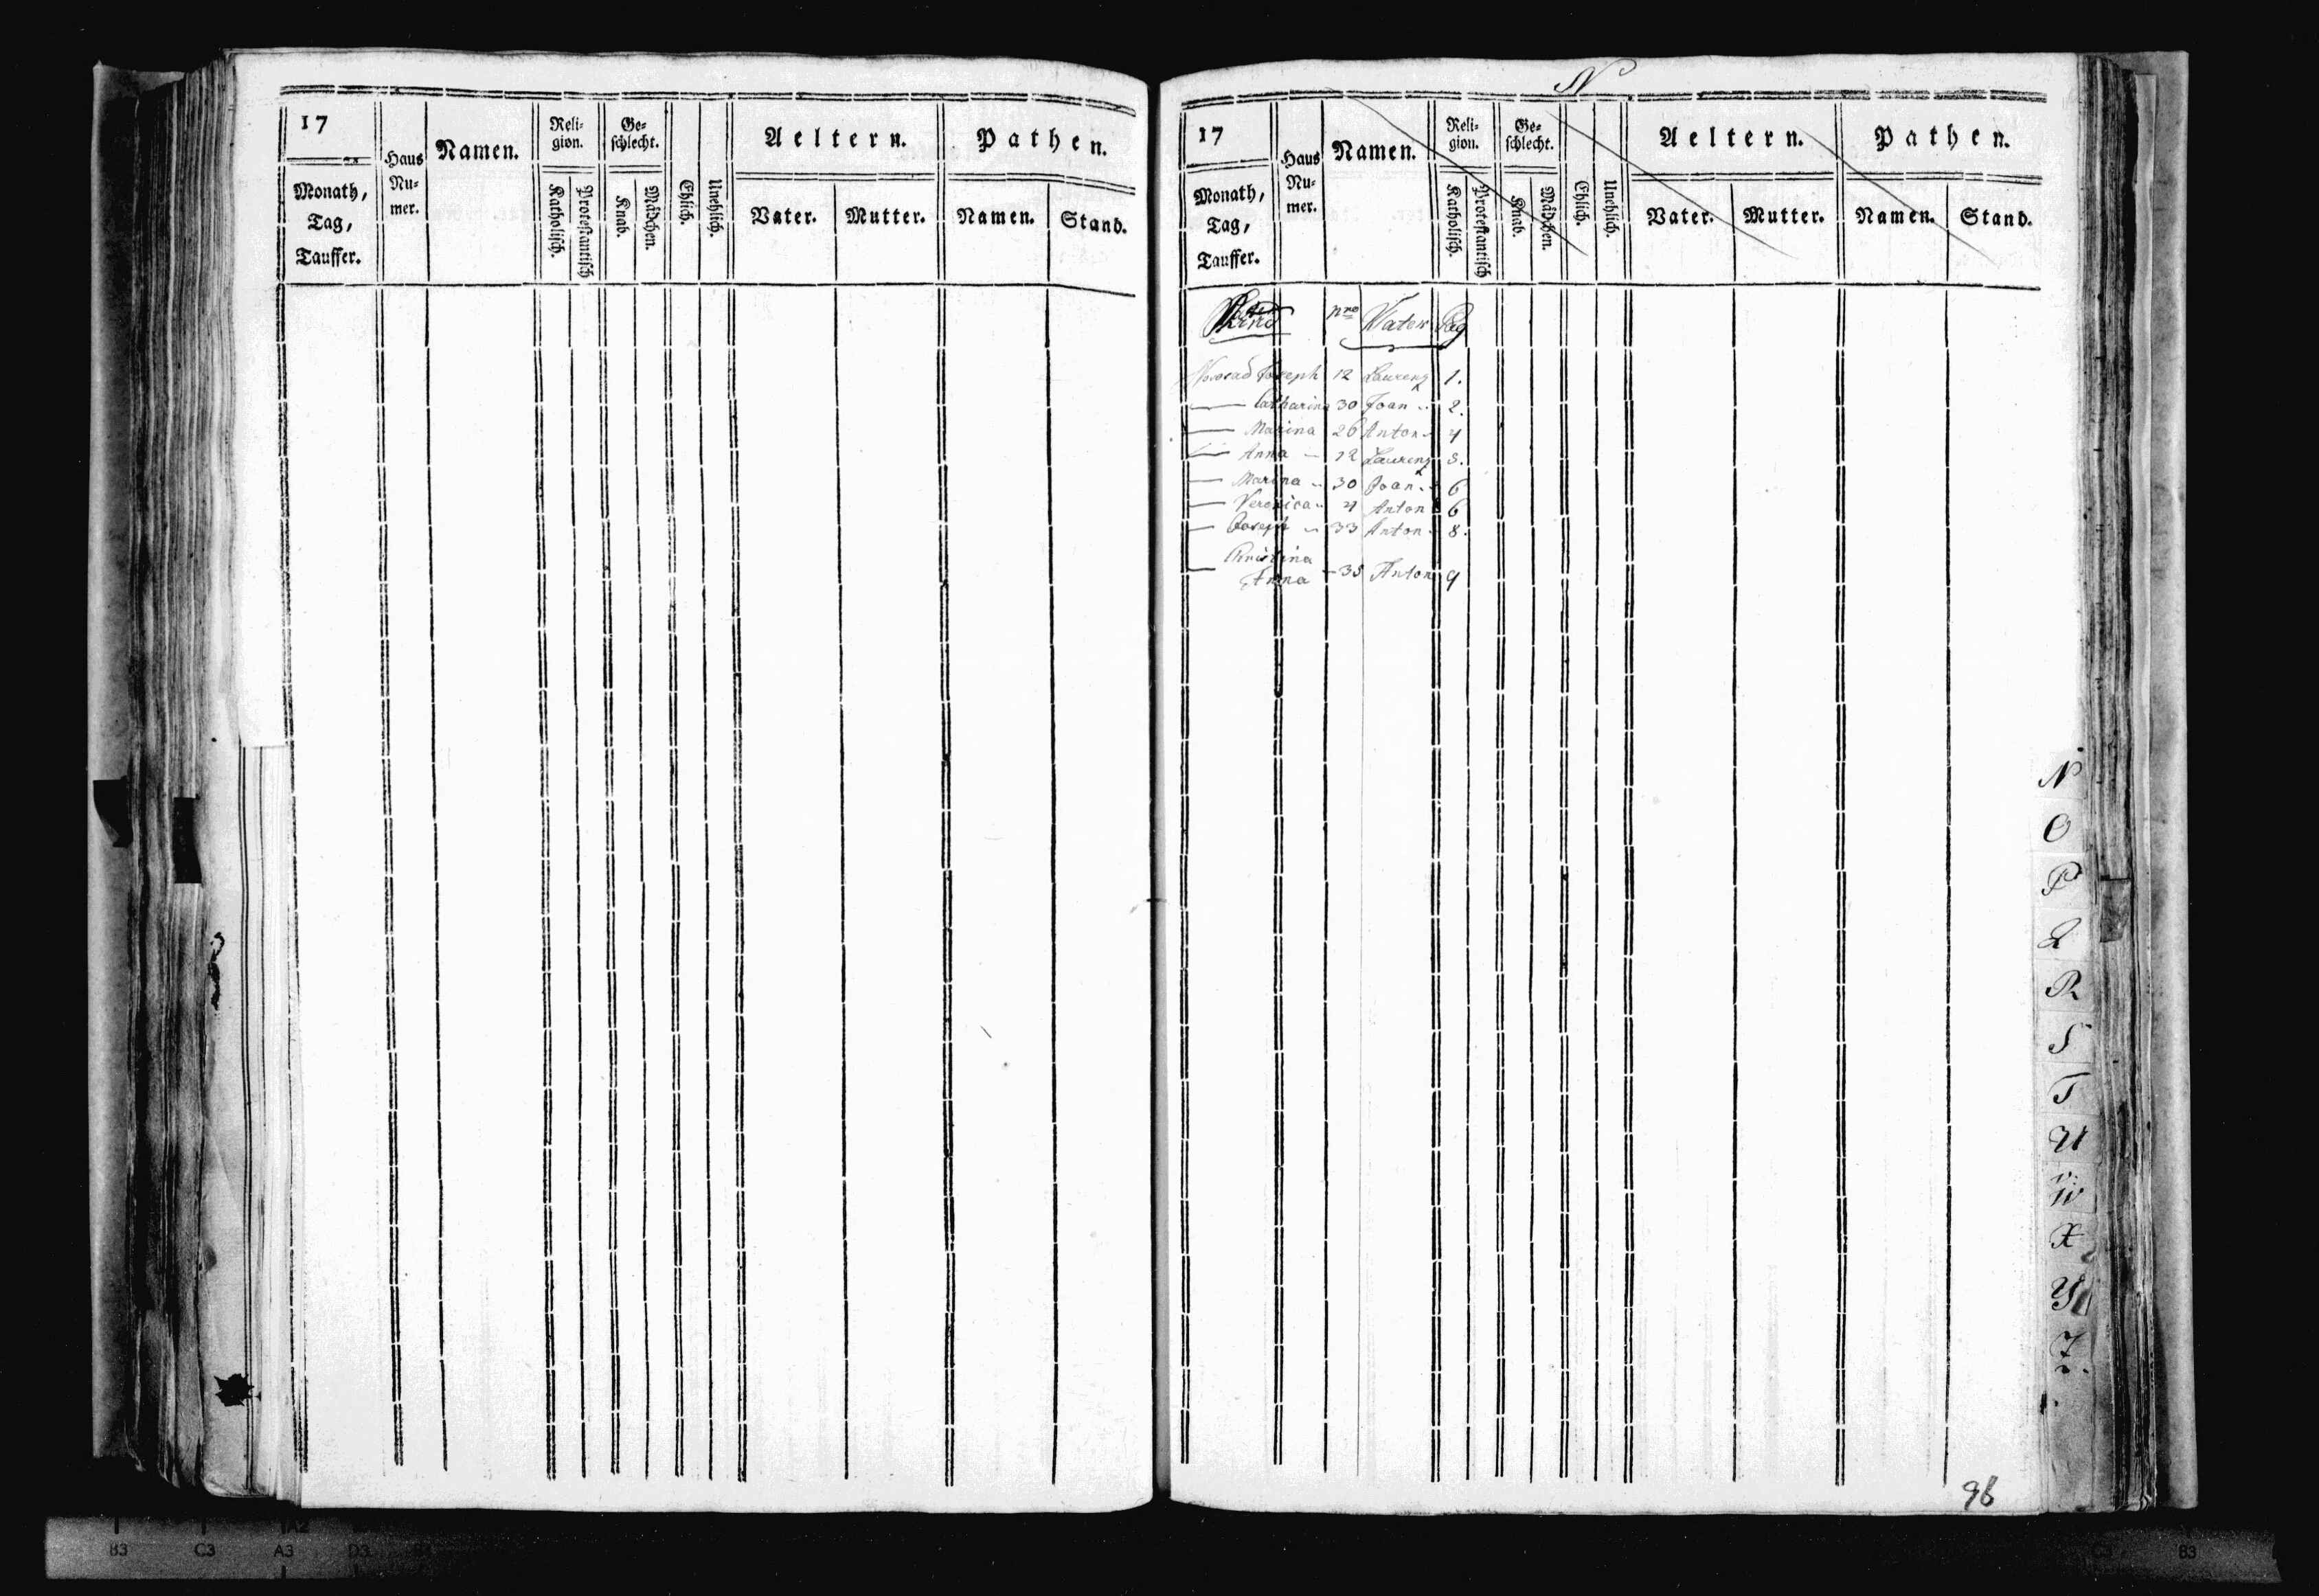 17
Monath,
Tag,
Tauffer.
Haus
Nu-
mer.
Namen.
Reli-
gion.
Katholisch.
Protestantisch
Ge-
schlecht.
Knab.
Mädchen.
Ehlich.
Unehlich.
Aeltern.
Vater.
Mutter.
Pathen.
Namen.
Stand.
N
17
Monath,
Tag,
Tauffer.
Haus
Nu-
mer.
Namen.
Reli-
gion.
Katholisch.
Protestantisch
Ge-
schlecht.
Knab.
Mädchen.
Ehlich.
Unehlich.
Aeltern.
Vater.
Mutter.
Pathen.
Namen.
Stand.
Kind nro Vater Pag
Nowad Joseph 12 Laurenz 1.
— Catharina 30 Joan 2.
— Marina 26 Anton 4
— Anna — 12 Laurenz 5.
— Marina 30 Joan 6
— Veronica 4 Anton 6
— Joseph 33 Anton 8.
Christina
— Anna — 35 Anton 9
N
O
P
Q
R
S
T
U
V:
W
X
Y
Z
98
B3 C3 A3 A2 D3
C3 B3